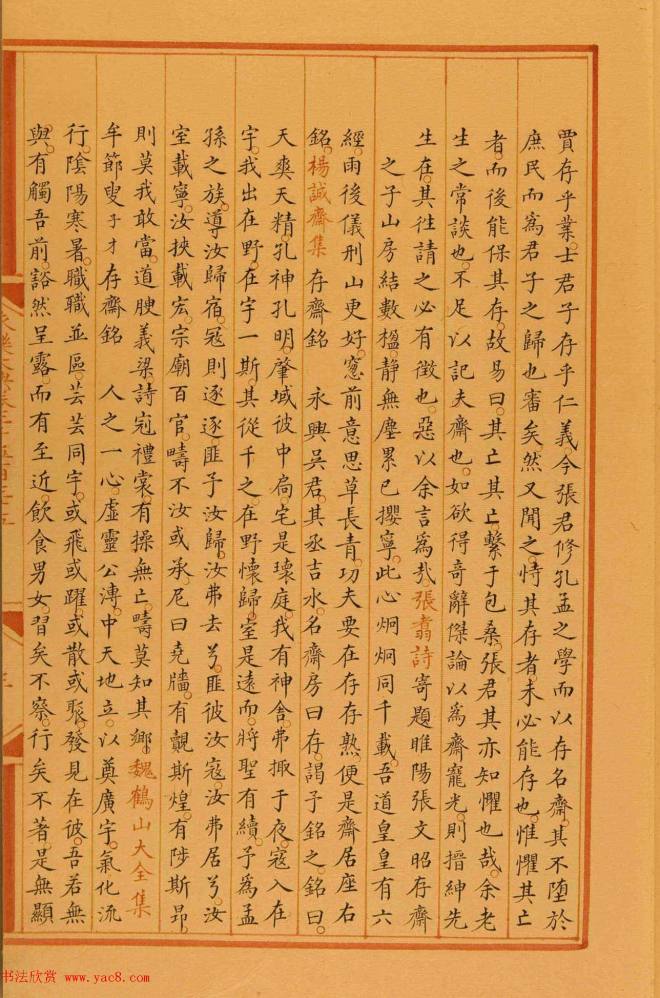 賈存乎業。士君子存乎仁義。今張君修孔孟之學而以存名齋。其不墮於
庶民而爲君子之歸也審矣。然又聞之恃其存者。未必能存也。惟懼其亡
者。而後能保其存。故易曰。其亡其亡。繫于包桑。張君其亦知懼也哉。余老
生之常談也。不足以記夫齋也。如欲得奇辭傑論以爲齋寵光。則搢紳先
生在。其徃請之必有徵也。惡以余言爲㢤。張翥詩寄題睢陽張文昭存齋
之子山房結數楹。靜無塵累已攖寧。此心炯炯同千載。吾道皇皇有六
經。雨後儀刑山更好。窓前意思草長青。功夫要在存存熟。便是齋居座右
銘。楊誠齋集 存齋銘 永興吳君。其丞吉水。名齋房曰存。謁予銘之。銘曰。
天奭天精。孔神孔明。肇域彼中。扃宅是瓌庭。我有神舍。弗掫于夜。寇入在
宇。我出在野。在宇一斯。其從千之。在野懷歸。室是遠而。將聖有續。予爲孟
孫之族。導汝歸宿。寇則逐逐。匪予汝歸。汝弗去兮。匪彼汝寇。汝弗居兮。汝
室載寧。汝挾載宏。宗廟百官。疇不汝或承。尼曰堯牆。有覿斯煌。有陟斯昂。
則莫我敢當。道腴義粱。詩㓂禮裳。有操無亡。疇莫知其鄉。魏鶴山大全集
牟節叟子才存齋銘 人之一心。虛靈公溥。中天地立。以奠廣宇。氣化流
行。陰陽寒暑。職職並區。芸芸同宇。或飛或躍。或散或聚。發見在彼。吾若無
與。有觸吾前。豁然呈露。而有至近。飲食男女。習矣不察。行矣不著。是無顯
书法欣赏 www.yac8.com